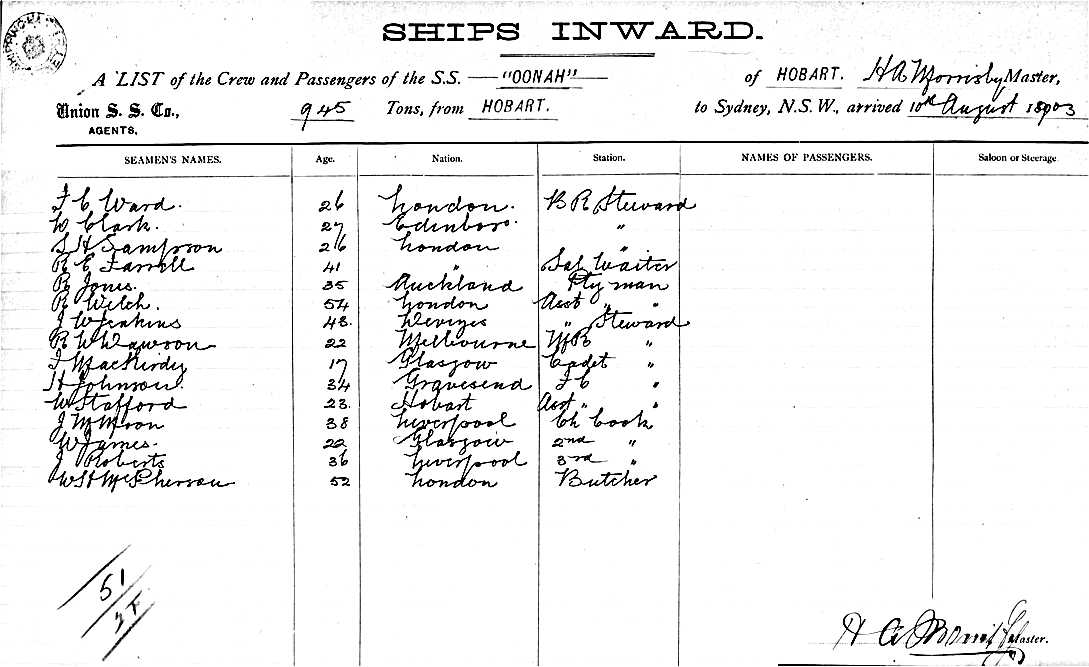 SHIPS INWARD.
A LIST of the Crew and Passengers of the S.S. "OONAH" of HOBART. H A Morrisby Master,
Union S. S. Co., 945 Tons, from HOBART. to Sydney, N.S.W., arrived 10th August 1903
AGENTS,
SEAMEN'S NAMES. Age. Nation. Station. NAMES OF PASSENGERS. Saloon or Steerage
F C Ward. 26 London. B R Steward
W Clark. 27 Edinboro. "
S H Sampson 26 London "
R E Farrell 41 " Sal Waiter
R Jones. 35 Auckland Pty man
R Welch. 54 London Asst " "
J W Jenkins 48. Devizes " Steward
R W Dawson 22 Melbourne M R "
J MacKirdy 17 Glasgow Cadet "
H Johnson. 34 Gravesend F C "
W Stafford 23. Hobart Asst " "
J M Moon 38 Liverpool Ch Cook
W James. 22 Glasgow 2nd "
J Roberts 36 Liverpool 3rd "
W S H McPherson 52 London Butcher
51
H A Morrisby Master.